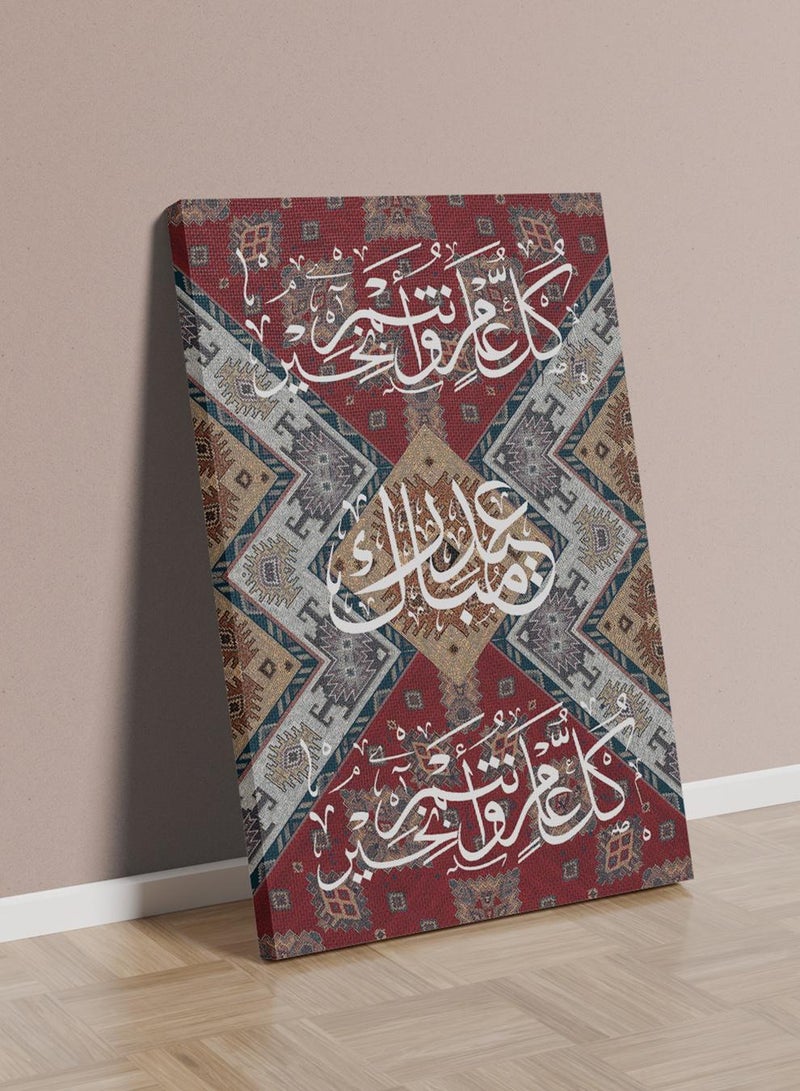 كُل عَامٍ وَأَنتُم بِخَيْرٍ
عيد مبارك
كُل عَامٍ وَأَنتُم بِخَيْرٍ